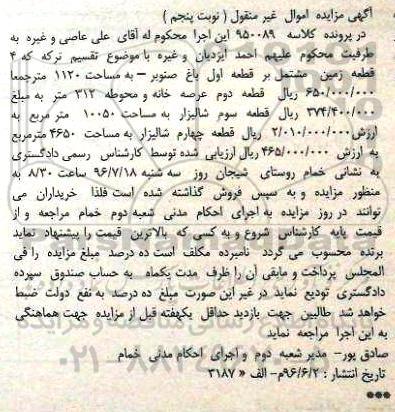 آگهی مزایده اموال غیر منقول ( نوبت پنجم )
در پرونده کلاسه ۹۵۰۰۸۹ این اجرا محکوم له آقای علی عاصی و غیره به
طرفیت محکوم علیهم احمد ایزدیان و غیره با موضوع تقسیم ترکه که ۴
قطعه زمین مشتمل بر قطعه اول باغ صنوبر – به مساحت ۱۱۲۰ مترجمعا
۶۵۰/۰۰۰/۰۰۰ ریال قطعه دوم عرصه خانه و محوطه ۳۱۲ متر به مبلغ
۳۷۴/۴۰۰/۰۰۰ ریال قطعه سوم شالیزار به مساحت ۱۰۰۵۰ متر مربع به
ارزش ۲/۰۱۰/۰۰۰/۰۰۰ ریال قطعه چهارم شالیزار به مساحت ۴۶۵۰ مترمربع
به ارزش ۴۶۵/۰۰۰/۰۰۰ ریال ارزیابی شده توسط کارشناس رسمی دادگستری
به نشانی خمام روستای شیجان روز سه شنبه ۹۶/۷/۱۸ ساعت ۸/۳۰ به
منظور مزایده و به سپس فروش گذاشته شده است فلذا خریداران می
توانند در روز مزایده به اجرای احکام مدنی شعبه دوم خمام مراجعه و از
قیمت پایه کارشناس شروع و به کسی که بالاترین قیمت را پیشنهاد نماید
برنده محسوب می گردد نامبرده مکلف است ده درصد مبلغ مزایده را فی
المجلس پرداخت و مابقی آن را ظرف مدت یکماه به حساب صندوق سپرده
دادگستری تودیع نماید در غیر این صورت مبلغ ده درصد به نفع دولت ضبط
خواهد شد طالبین جهت بازدید حداقل یکهفته قبل از مزایده جهت هماهنگی
به این اجرا مراجعه نماید
صادق پور– مدیر شعبه دوم و اجرای احکام مدنی خمام
تاریخ انتشار : ۹۶/۶/۲م– الف « ۳۱۸۷
***
۰۲۱-۸۸۳۴۹۶